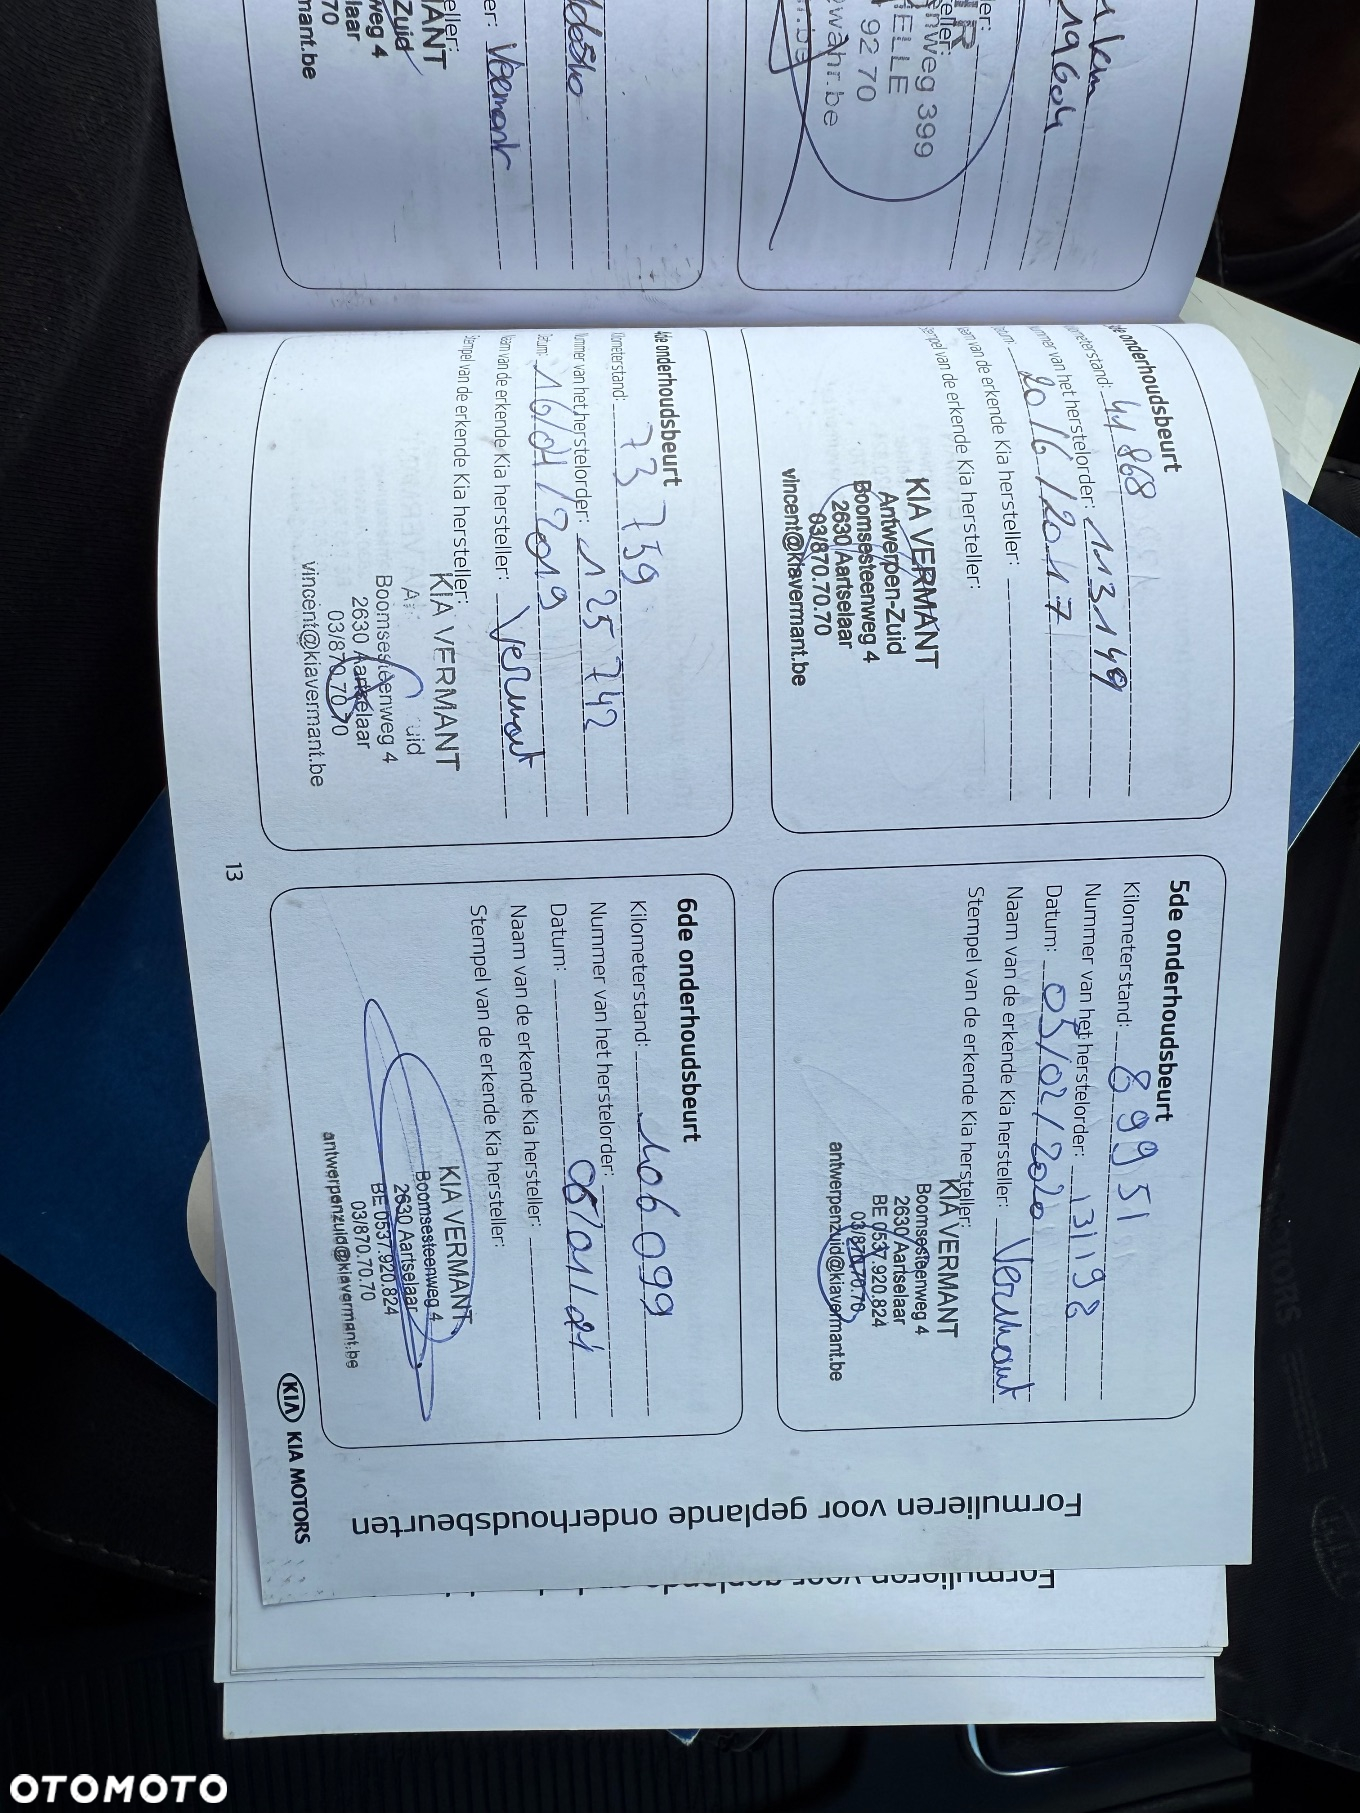 r Van
19604
ller:
teller:
HR
enweg 399
ELLE
92 70
wahr.be
r.be
er: Vermant
eller:
MANT
Zuid
weg 4
laar
70
mant.be
de onderhoudsbeurt
ometerstand: 44 868
ummer van het herstelorder: 113149
atum: 20/6/2017
Naam van de erkende Kia hersteller:
Stempel van de erkende Kia hersteller:
KIA VERMANT
Antwerpen-Zuid
Boomsesteenweg 4
2630 Aartselaar
03/870.70.70
vincent@kiavermant.be
4de onderhoudsbeurt
Kilometerstand: 73 739
Nummer van het herstelorder: 125 742
Datum: 16/01/2019
Naam van de erkende Kia hersteller: Vermant
Stempel van de erkende Kia hersteller:
KIA VERMANT
A uid
Boomsesteenweg 4
2630 Aartselaar
03/870.70.70
vincent@kiavermant.be
13
5de onderhoudsbeurt
Kilometerstand: 89951
Nummer van het herstelorder: 131198
Datum: 05/02/2020
Naam van de erkende Kia hersteller: Vermant
Stempel van de erkende Kia hersteller:
KIA VERMANT
Boomsesteenweg 4
2630 Aartselaar
BE 0537.920.824
03/870.70.70
antwerpenzuid@kiavermant.be
6de onderhoudsbeurt
Kilometerstand: 106099
Nummer van het herstelorder:
Datum: 05/01/21
Naam van de erkende Kia hersteller:
Stempel van de erkende Kia hersteller:
KIA VERMANT
Boomsesteenweg 4
2630 Aartselaar
BE 0537.920.824
03/870.70.70
antwerpenzuid@kiavermant.be
Formulieren voor geplande onderhoudsbeurten
KIA KIA MOTORS
OTOMOTO